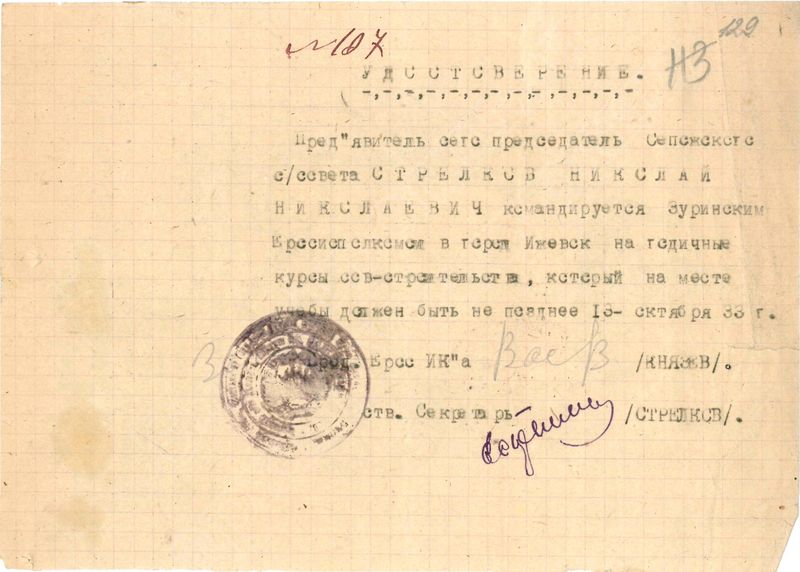 129
№187
НЗ
УДОСТОВЕРЕНИЕ.
Пред"явитель сего председатель Сепожского
с/совета СТРЕЛКОВ НИКОЛАЙ
НИКОЛАЕВИЧ командируется Зуринским
Еросисполкомом в город Ижевск на годичные
курсы сов-строительства, который на месте
учебы должен быть не позднее 13- октября 33 г.
Пред. Ерос ИК"а /КНЯЗЕВ/.
ств. Секретарь /СТРЕЛКОВ/.